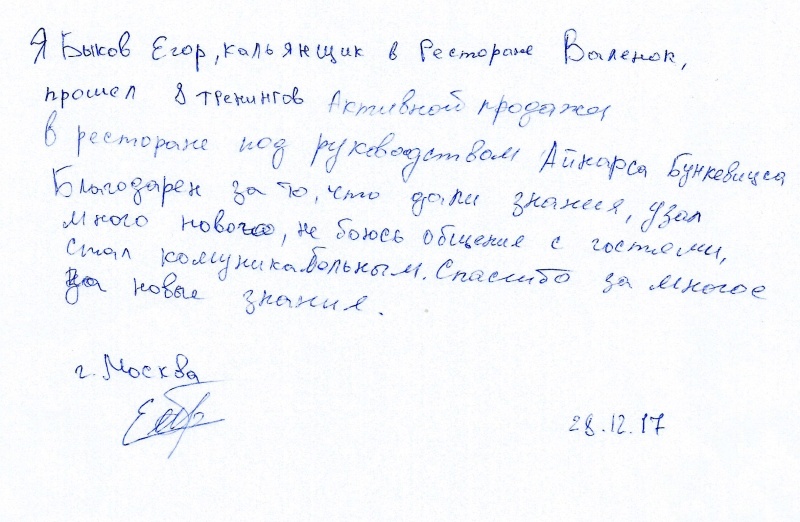 Я Быков Егор, кальянщик в Ресторане Валенок,
прошел 8 тренингов Активной продажи
в ресторане под руководством Айнарса Бункевицса
Благодарен за то, что дали знания, узал
много нового, не боюсь общения с гостями,
стал комуникабольным. Спасибо за многое
за новые знания.
г. Москва
28.12.17